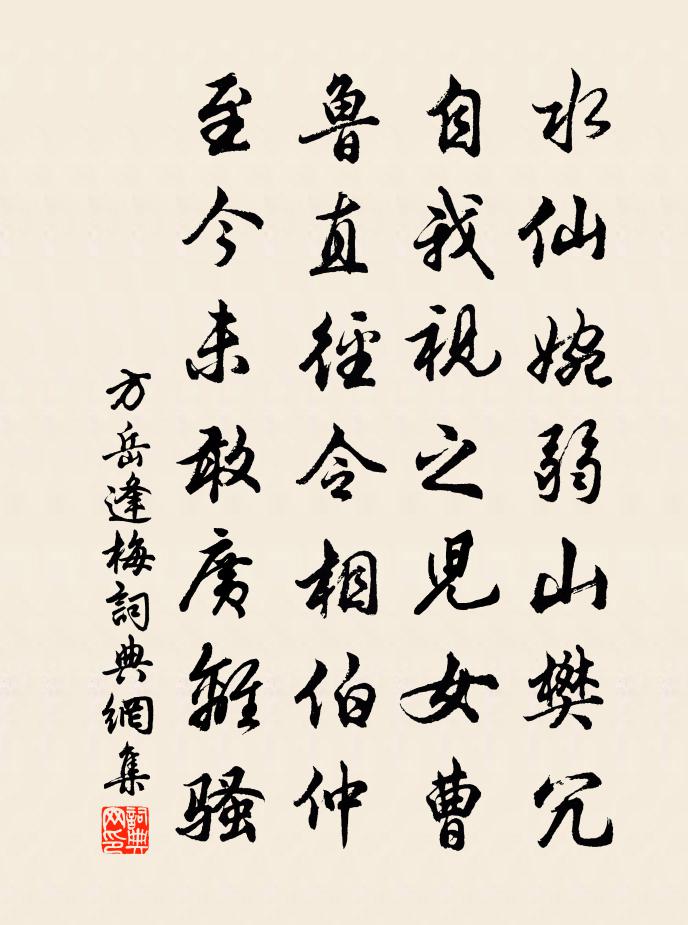 水仙婉弱山樊冗
自我視之児女曹
魯直徑令相伯仲
至今未敢廣離騷
方岳逢梅詞典網集
詞典網印